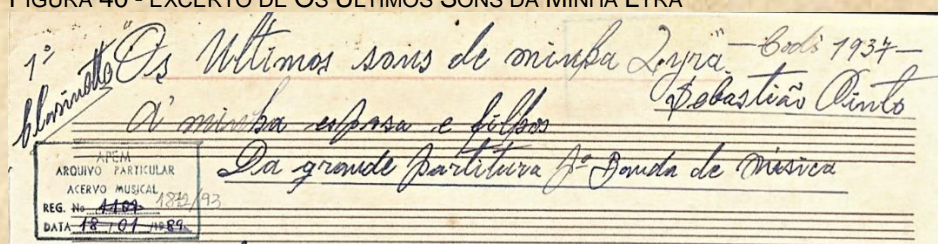 FIGURA 40 - EXCERTO DE OS ÚLTIMOS SONS DA MINHA LYRA
1º Clarinetto "Os Ultimos sons de minha Lyra" — Codó 1937 —
Sebastião Pinto
A' minha esposa e filhos
Da grande partitura pª Banda de música
APEM
ARQUIVO PARTICULAR
ACERVO MUSICAL
REG. No 1109 1872/93
DATA 18 / 01 / 1989